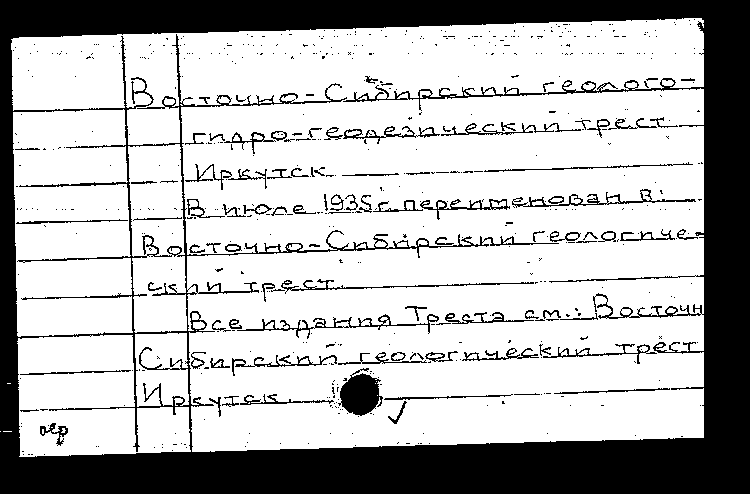 Восточно-Сибирский геолого-
гидро-геодезический трест
Иркутск
В июле 1935г. переименован в:
Восточно-Сибирский геологиче-
ский трест.
Все издания Треста см.: Восточн
Сибирский геологический трест
Иркутск.